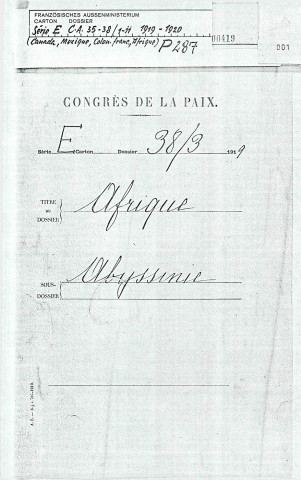 FRANZÖSISCHES AUSSENMINISTERIUM
CARTON DOSSIER
Série E C.A. 35-38/1-11 1919 - 1920
(Canada, Mexique, Colon. franç., Afrique) P 287
00419
001
CONGRÈS DE LA PAIX.
Série E Carton Dossier 38/3 1919
TITRE DU DOSSIER Afrique
SOUS-DOSSIER Abyssinie